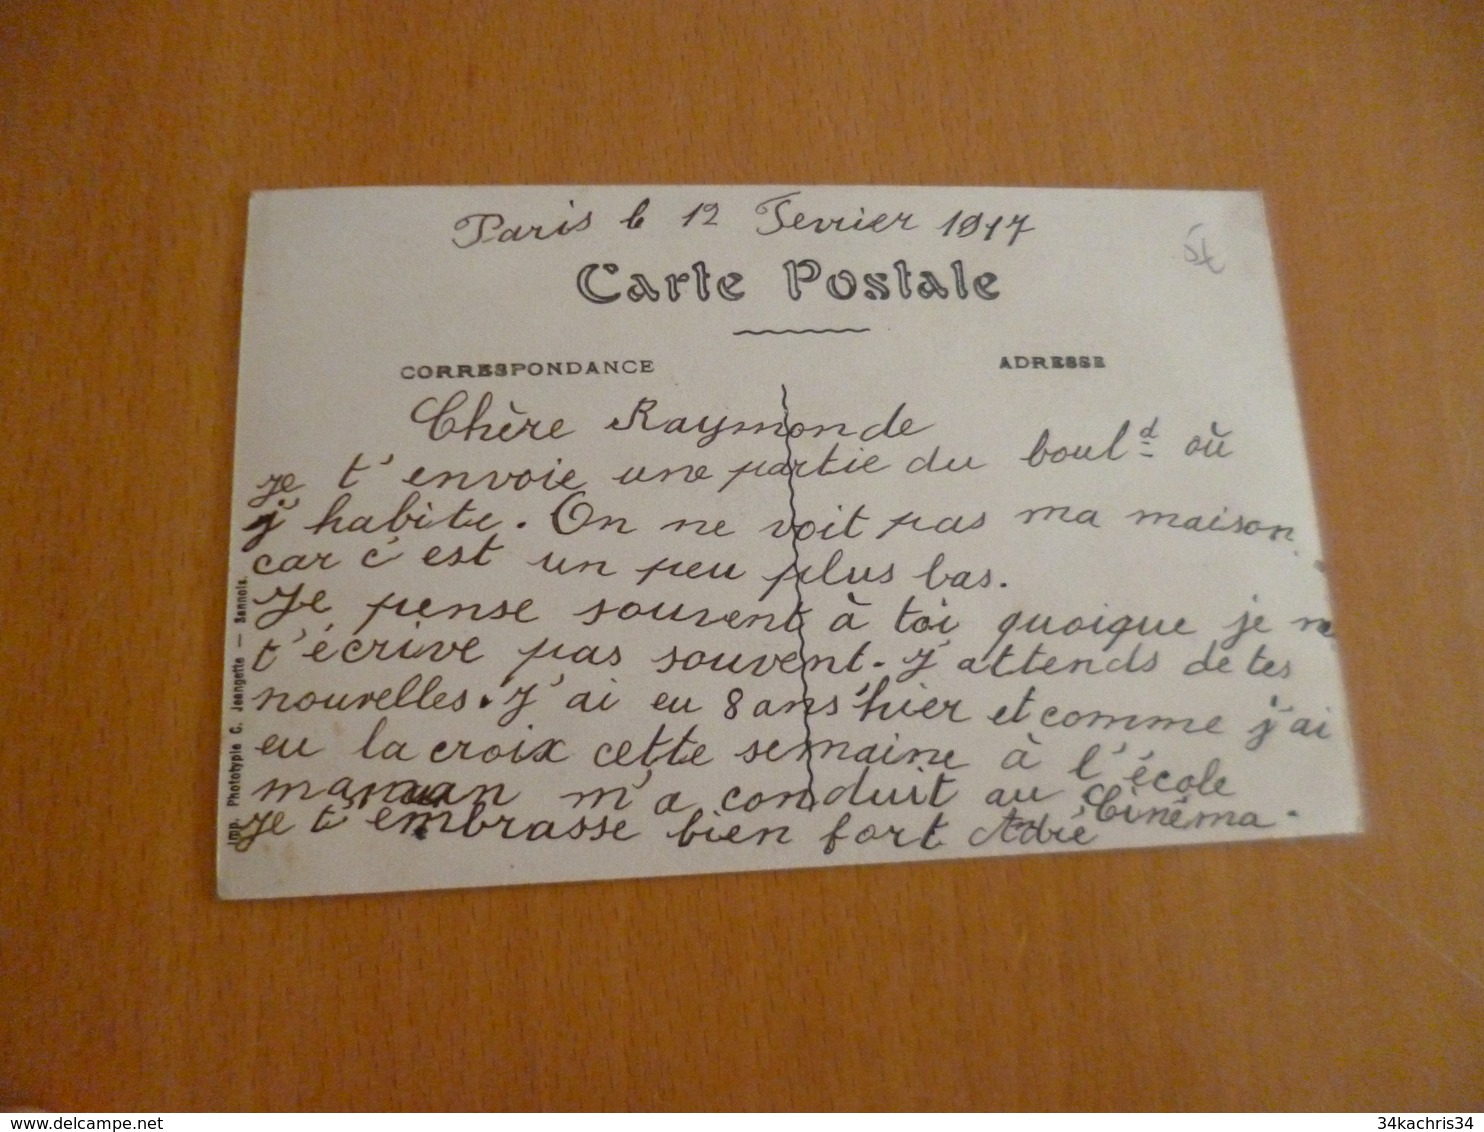 Paris le 12 Fevrier 1917
Carte Postale
CORRESPONDANCE
ADRESSE
Chère Raymonde
je t'envoie une partie du boul<sup>d</sup> où
j'habite. On ne voit pas ma maison
car c'est un peu plus bas.
Je pense souvent à toi quoique je ne
t'écrive pas souvent. J'attends de tes
nouvelles. J'ai eu 8 ans hier et comme j'ai
eu la croix cette semaine à l'école
maman m'a conduit au Cinéma.
Je t'embrasse bien fort Adré
Imp. Phototypie C. Jeangette — Sannois.
34kachris34
delcampe.net